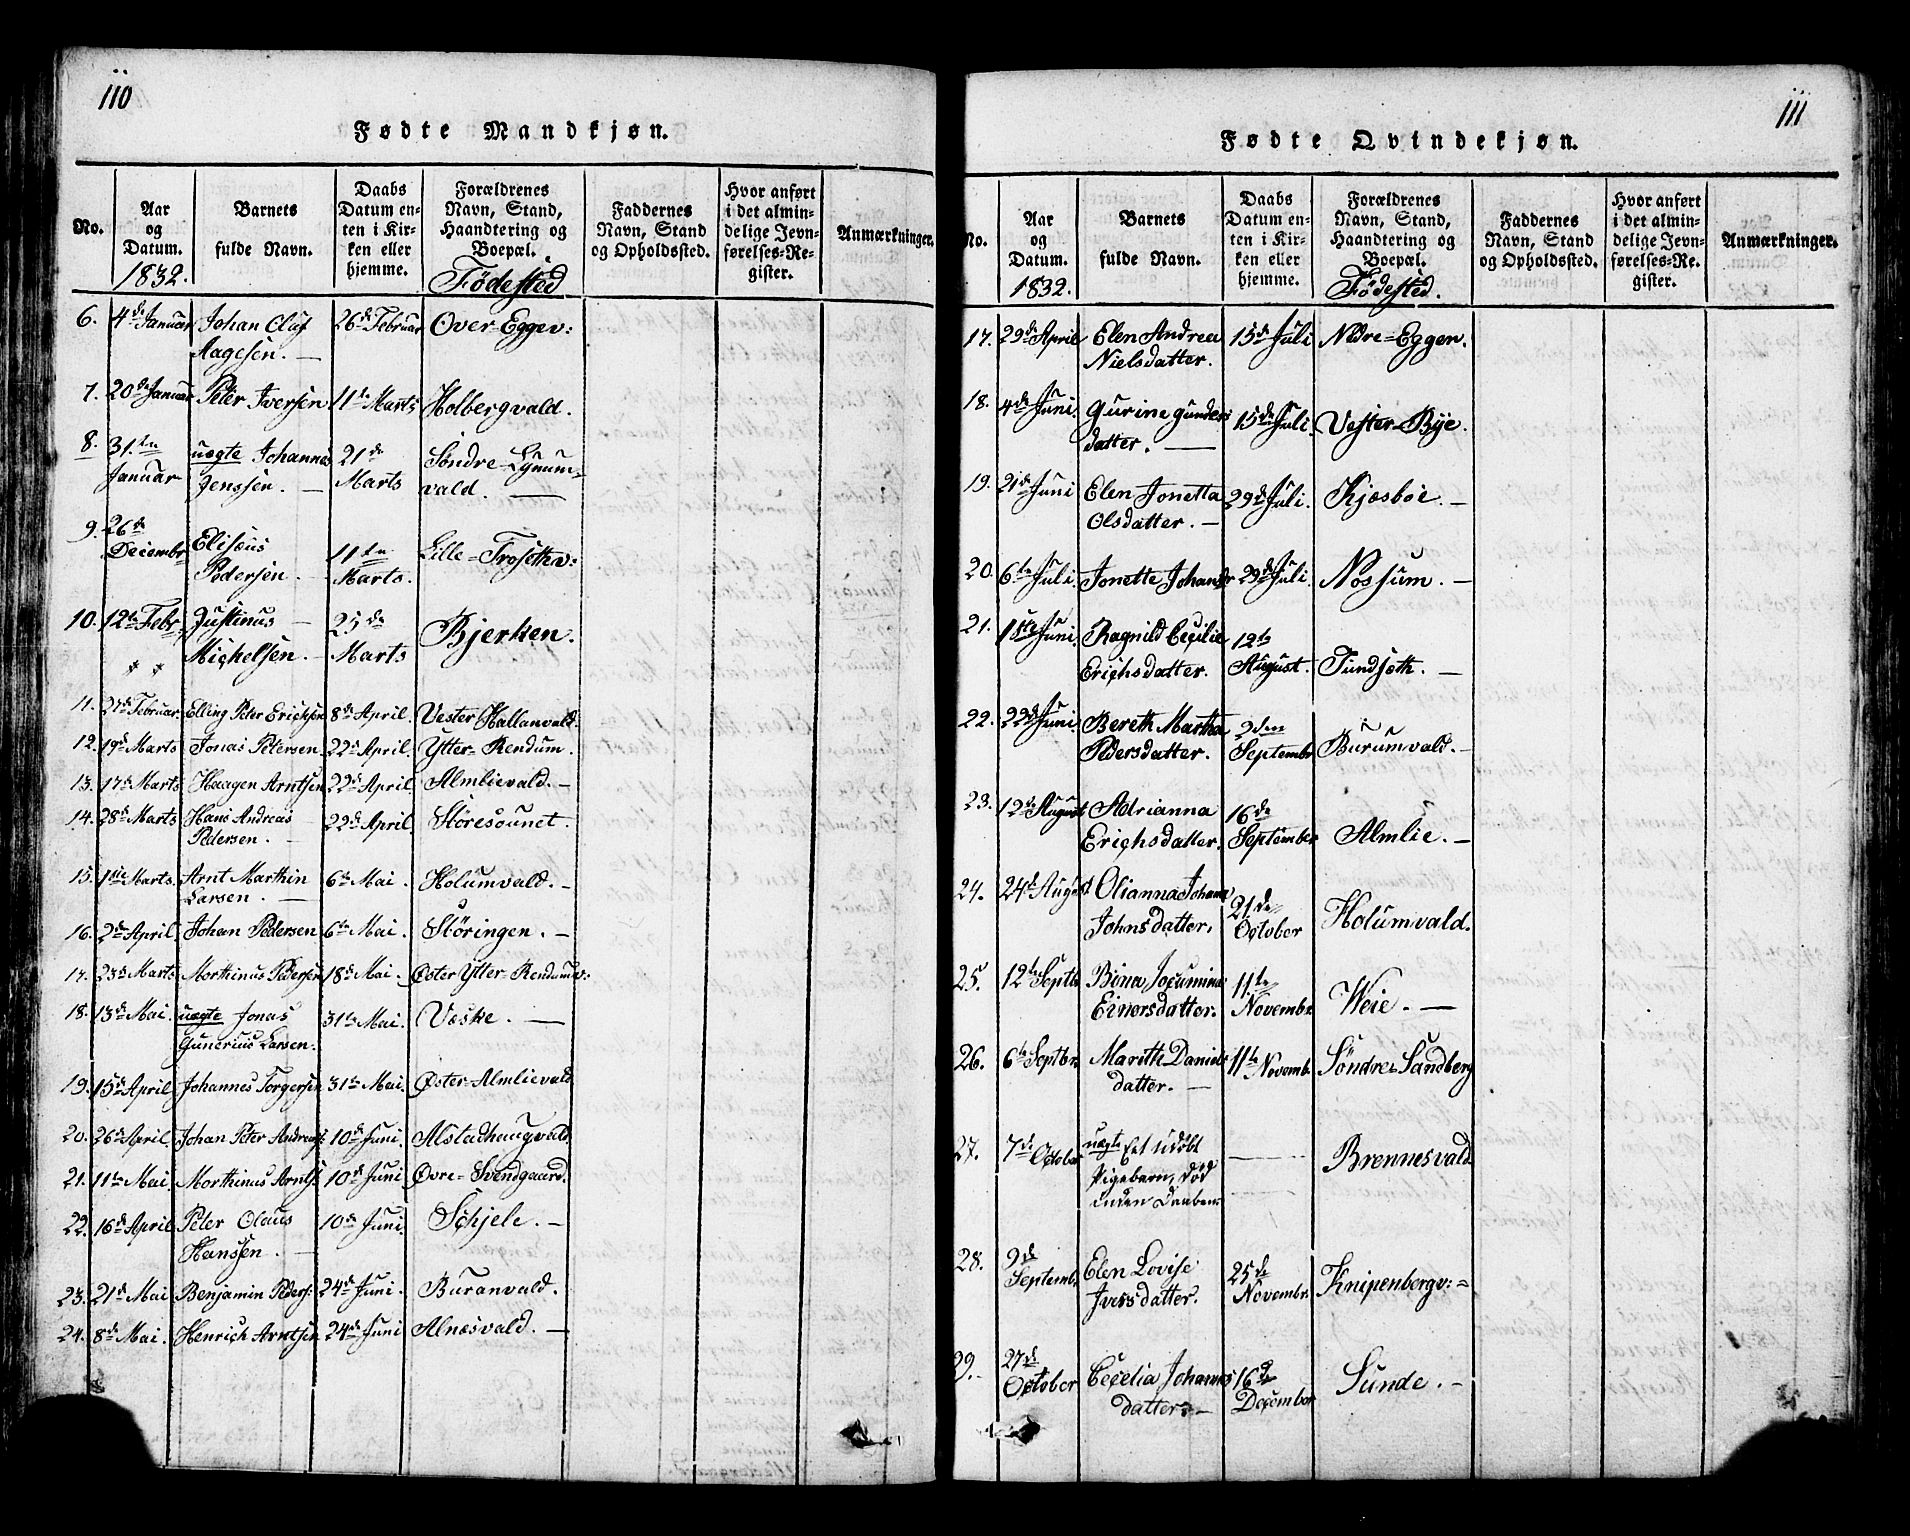 110
Fødte Mandkjøn.
No.
Aar
og
Datum.
1832.
Barnets
fulde Navn.
Daabs
Datum en-
ten i Kir-
ken eller
hjemme.
Forældrenes
Navn, Stand,
Haandtering og
Boepæl.
Födested
Faddernes
Navn, Stand
og Opholdssted.
Hvor anført
i det almin-
delige Jevn-
førelses-Re-
gister.
Anmærkninger.
6. 4de Januar Johan Oluf 26de Februar Over-Eggev:
Aagesen. —
7. 20de Januar Peter Iversen 11te Marts Holbergvald.
8. 31.te uægte Johannes 21de Söndre-Lynum-
Januar Jenssen. — Marts vald. —
9. 26de
Decembr Elisæus 11te Lille-Trosethv:
Pedersen. — Marts.
10. 12te Febr. Justinus — 25de Bjerken.
Michelsen. — Marts
11. 27de Februar. Elling Peter Erichsen 8de April. Vester Hallanvald.
12. 19de Marts Jonas Petersen 22de April. Ytter-Rendum.
13. 17de Marts Haagen Arntsen 22de April Almlievald. —
14. 28de Marts Hans Andreas 22de April. Störesounet.
Pedersen. —
15. 1ste Marts. Arnt Marthin 6te Mai. Holumvald. —
Larsen. —
16. 2de April. Johan Pedersen 6te Mai. Störingen. —
17. 23de Marts Morthinus Pedersen 18de Mai. Öster Ytter-Rendumv:
18. 13de Mai. uægte Jonas 31te Mai. Væske. —
Gunerius Larsen.
19. 15de April Johannes Torgersen 31te Mai. Øster-Almlievald
20. 26de April. Johan Peter Andreas: 10de Juni. Alstadhaugvald.
21. 11te Mai. Morthinus Arnts: 10de Juni Øvre-Svendgaard.
22. 16de April Peter Olaus 10de Juni. Schjele. —
Hanssen. —
23. 21de Mai Benjamin Peders: 24de Juni. Buranvald.
24. 8de Mai. Henrich Arntsen 24de Juni Alnæsvald. —
111
Fødte Qvindekjøn.
No.
Aar
og
Datum.
1832.
Barnets
fulde Navn.
Daabs
Datum en-
ten i Kir-
ken eller
hjemme.
Forældrenes
Navn, Stand,
Haandtering og
Boepæl.
Födested.
Faddernes
Navn, Stand
og Opholdssted.
Hvor anført
i det almin-
delige Jevn-
førelses-Re-
gister.
Anmærkninger.
17. 29de April Elen Andrea 15de Juli Nedre-Eggen.
Nielsdatter.
18. 4de Juni. Gurine Gunders 15de Juli. Vester-Bye.
datter. —
19. 21de Juni Elen Jonetta 29de Juli. Kjæsböe. —
Olsdatter. —
20. 6te Juli Jonette Johansdr 29de Juli. Nossum. —
21. 18te Juni. Ragnild Cecilie 12te
Erichsdatter. August. Tundsæth. —
22. 22de Juni. Bereth Martha 2den
Pedersdatter. Septembr Burumvald. —
23. 12te August Adrianna 16de
Erichsdatter. September Almlie. —
24. 24de August. Olianna Johanna 21de
Johnsdatter. October Holumvald.
25. 12te Septb. Bina Jocumina 11te
Einersdatter. Novembr. Weie. —
26. 6te Septbr. Mareth Daniels 11te Novemb. Söndre Sandberg
datter. —
27. 7de October uægte Eet udöbt — Brennesvald
Pigebarn, död
inden Daaben.
28. 9de
Septemb. Elen Lovise 25de Knipenbergv:=
Iversdatter. Novembr.
29. 27de
October Cecelia Johannes 16de Sunde. —
datter. — December